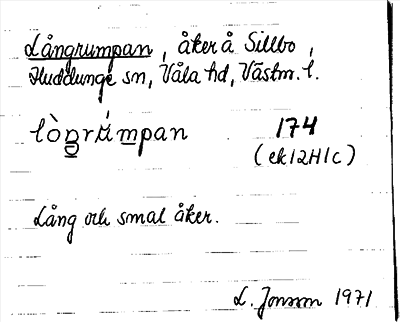 Långrumpan, åker å Sillbo,
Huddunge sn, Våla hd, Västm. l.
lòŋrúmpan 174
(ek12H1c)
Lång och smal åker.
L. Jonson 1971